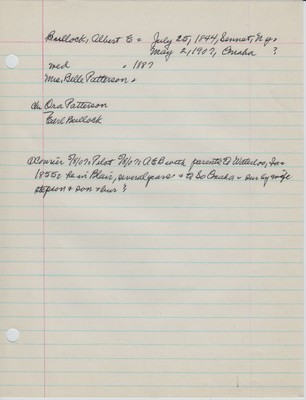 Bullock, Albert E = July 25, 1844, Sennet, N.Y.
May 2, 1907, Omaha ?
med . 1887
Mrs. Belle Patterson .
ch Ora Patterson
Earl Bullock
Pilot AEB with parents to Waterloo, Ia
1855 . he in Blair, several years . to So Omaha . sur by wife
stepson + son + bur ?